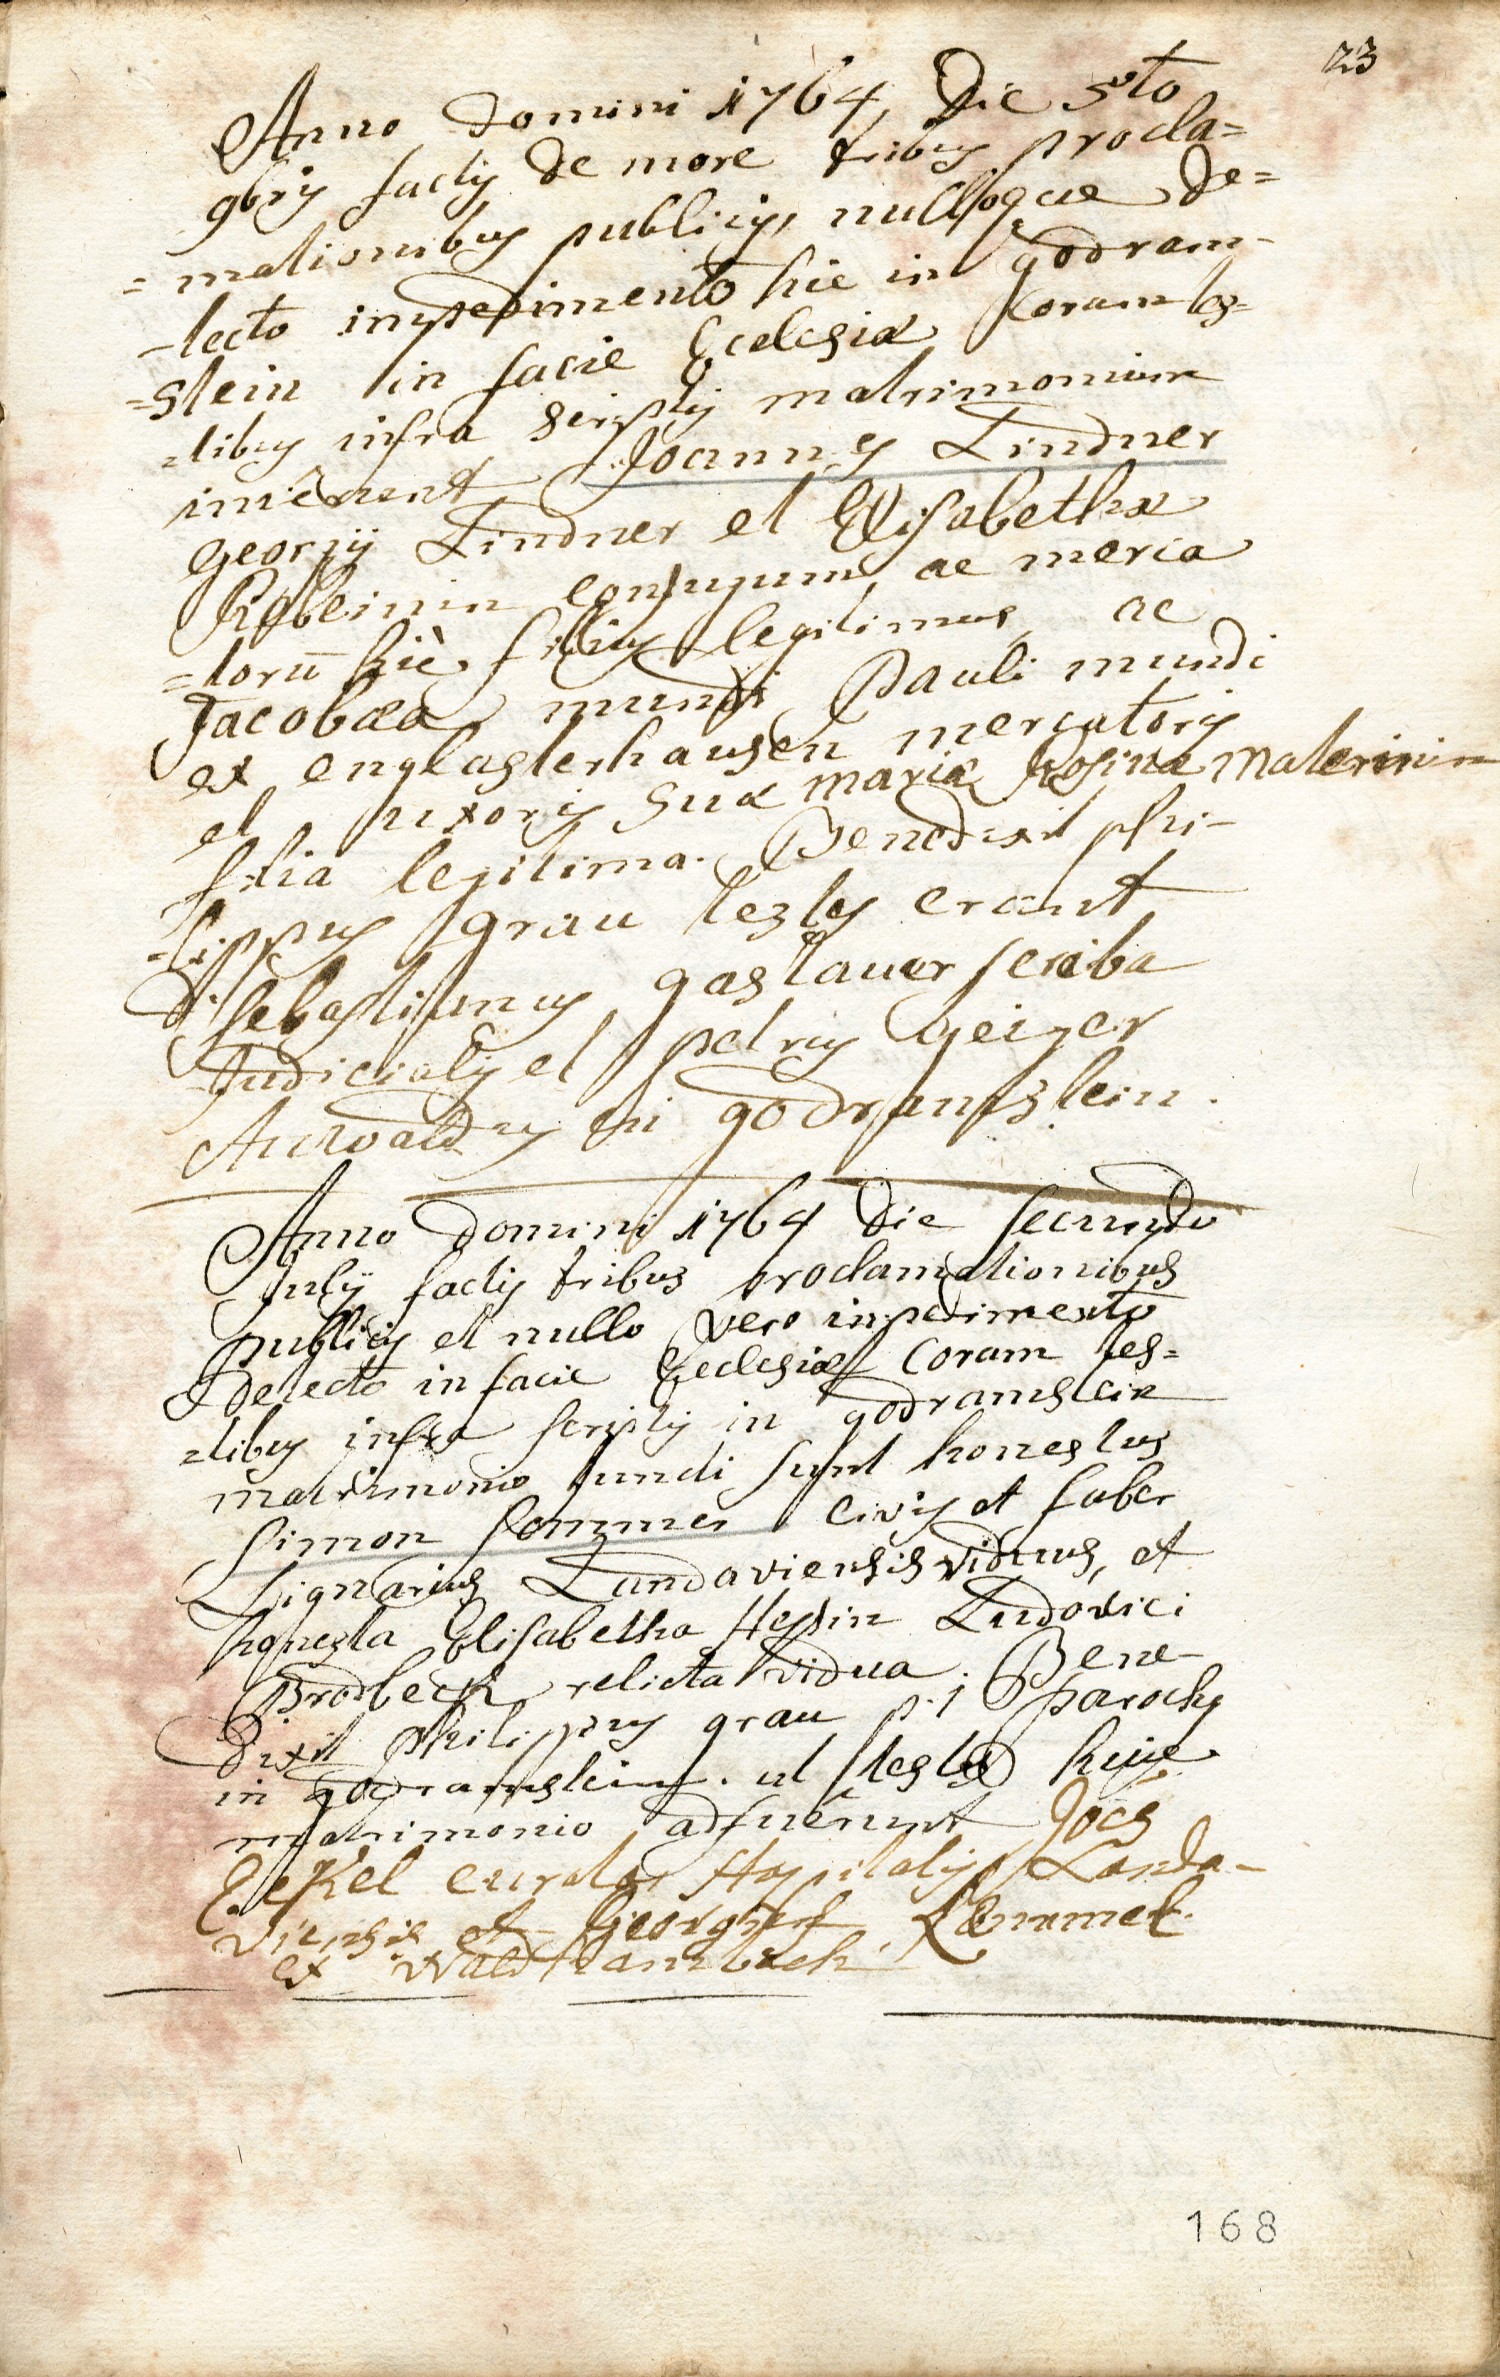 23
Anno Domini 1764 Die 5to
9bris factis de more tribus procla=
=mationibus publicis, nulloque de=
-tecto impedimento hic in godram-
=stein in facie Ecclesiæ Coram tes=
=tibus infra scriptis matrimonium
inierunt Joannes Lindner
georgij Lindner et Elisabethæ
conjugum ac merca
=torū hic filius legitimus, ac
Jacobæa mundi Pauli mundi
ex englasterhausen mercatoris
et uxoris suæ mariæ Rosinæ Materninin
filia legitima. Benedixit phi-
-lippus grau testes erant
D. sebastianus gastauer scriba
Judicialis et petrus geiger
Anwaldus in godramstein.
Anno Domini 1764 die secundo
July factis tribus proclamationibus
publicis et nullo vero impedimento
detecto in facie Ecclesiæ Coram tes=
=tibus infra scriptis in godramstein
matrimonio juncti sunt honestus
Simon Sommer civis et faber
Lignarius Landaviensis viduus, et
honesta Elisabetha Ludovici
Brodbeck relicta vidua. Bene-
dixit philippus grau p.t parochus
in godramstein. ut testes huic
matrimonio adfuerunt Joēs
Eckel curatus Hospitalis Landa-
viensis et Georgius Lemmel
ex Waldhambach.
168